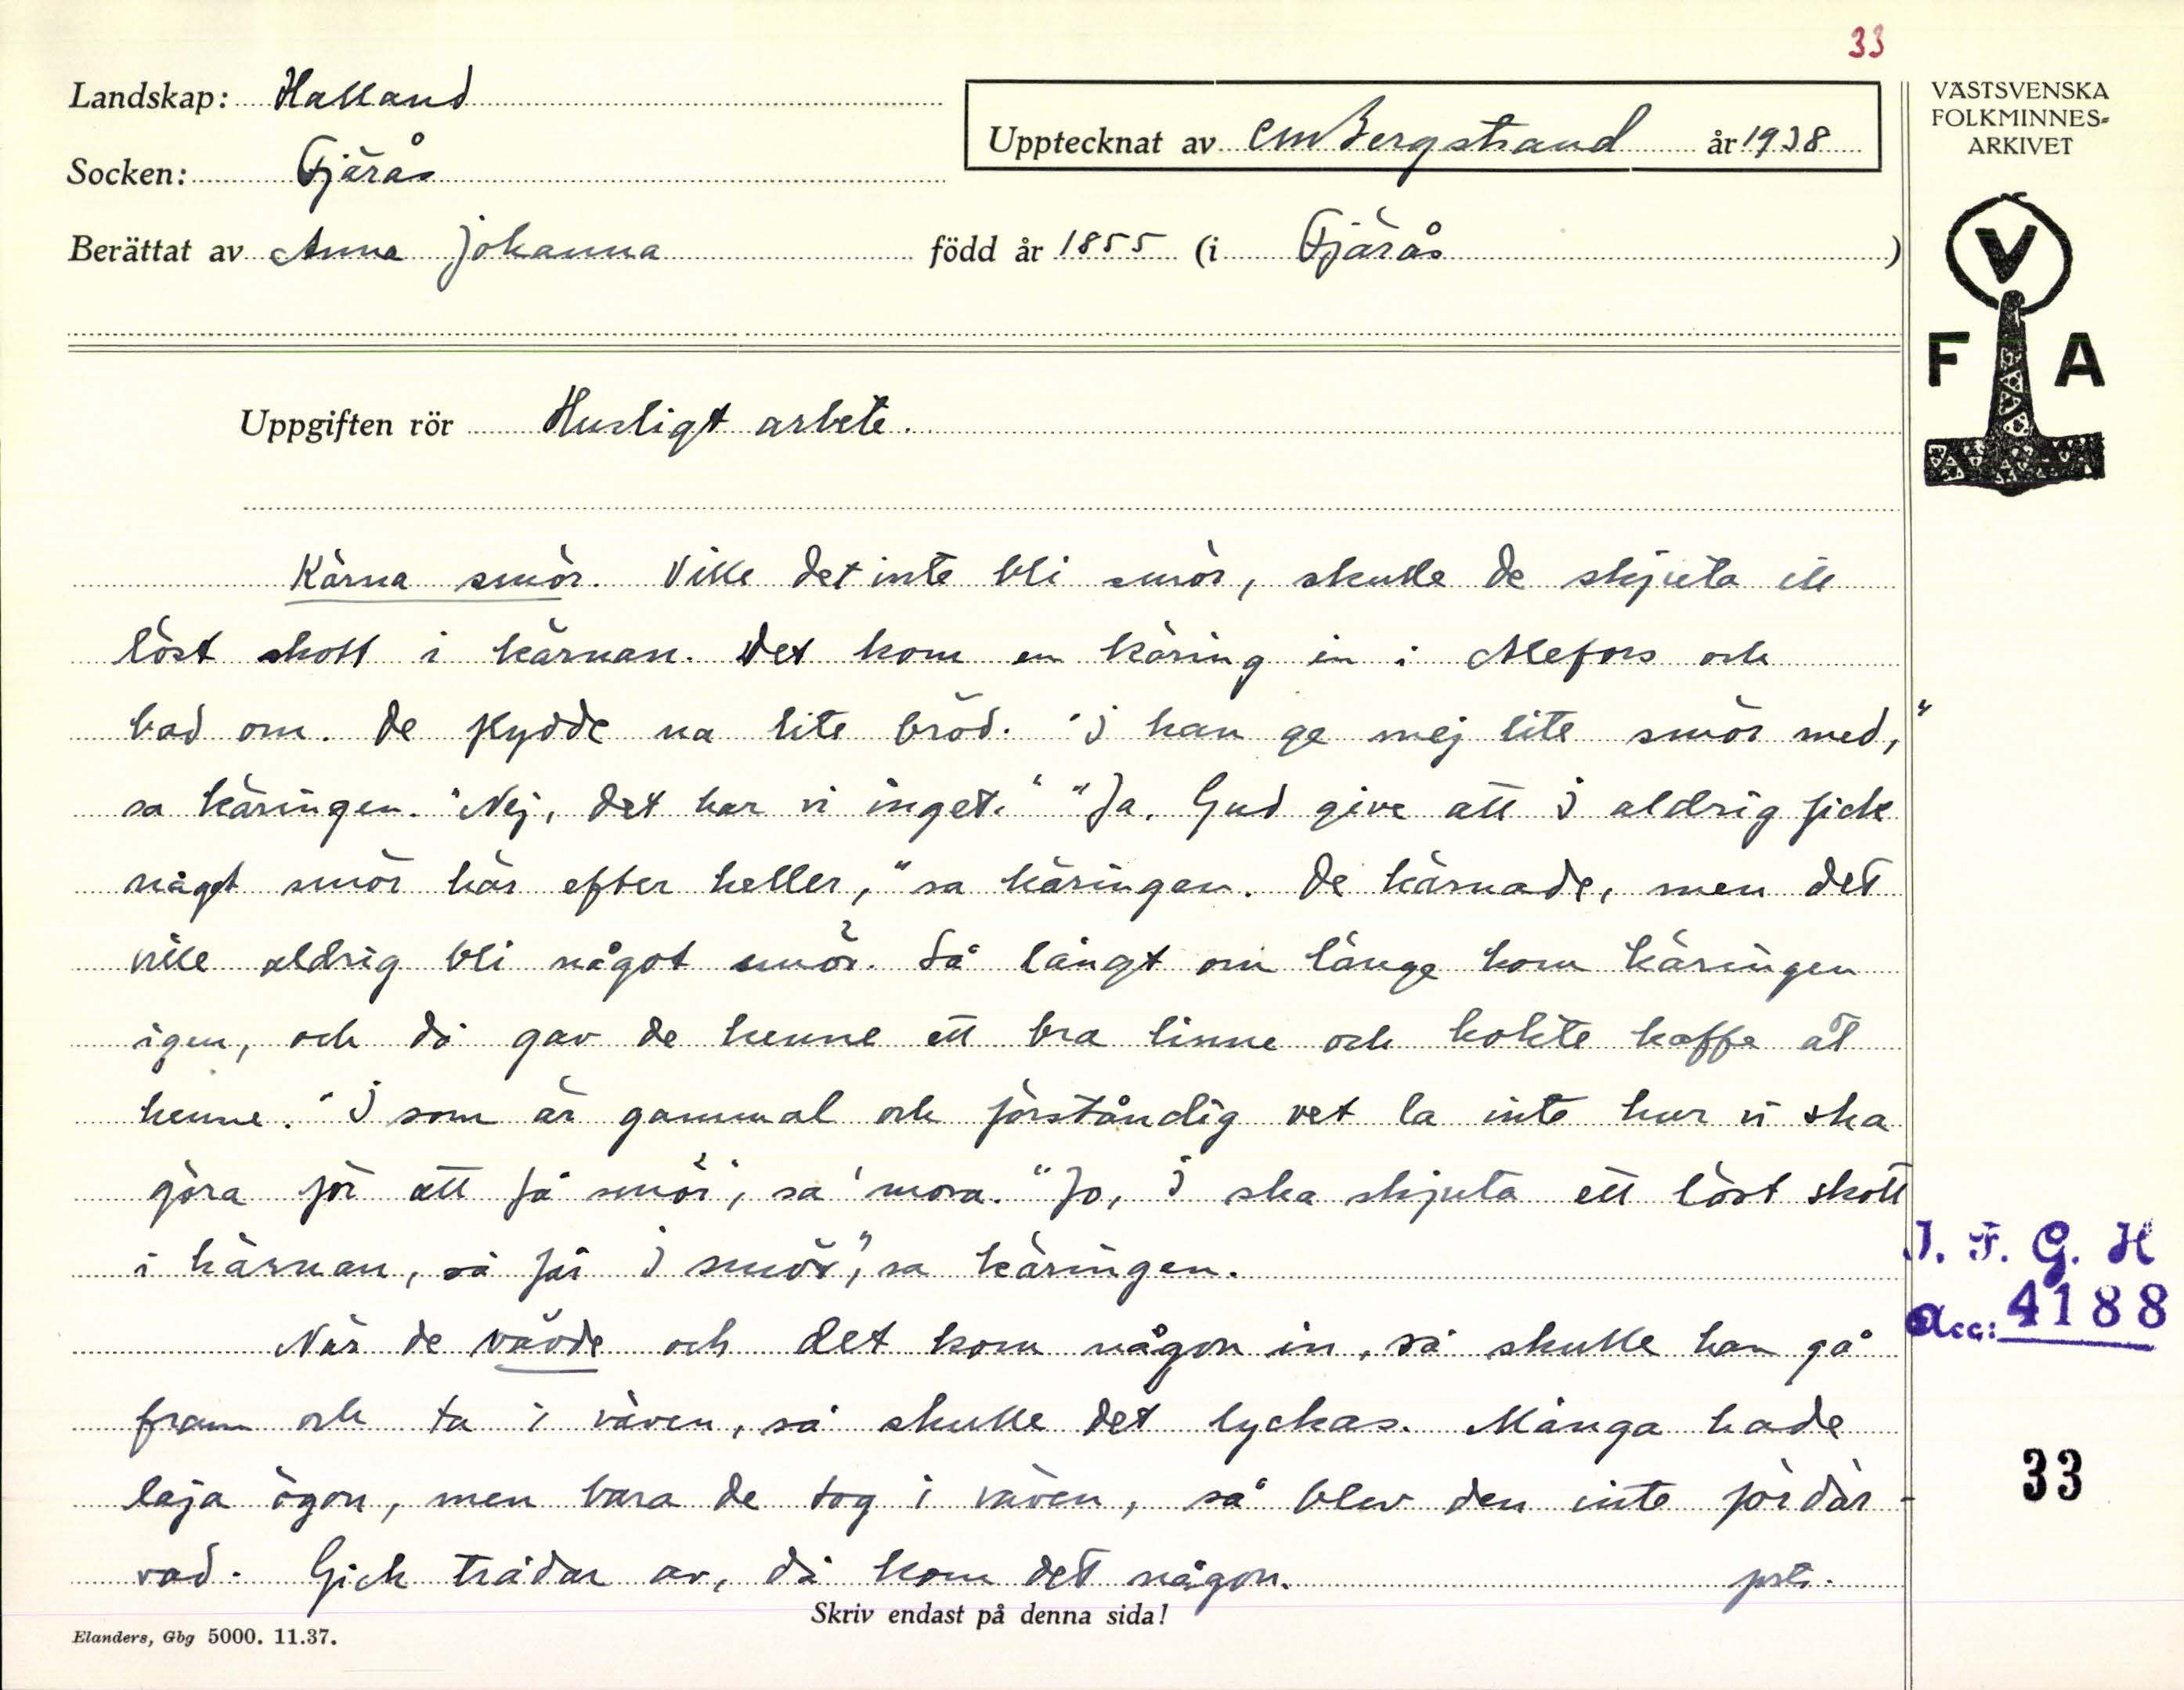 33
Landskap: Halland
Upptecknat av CMBergstrand år 1938
VÄSTSVENSKA
FOLKMINNES-
ARKIVET
Socken: Fjärås
Berättat av Anna Johanna född år 1855 (i Fjärås)
V
F A
Uppgiften rör Husligt arbete.
Kärna smör. Ville det inte bli smör, skulle de skjuta ett
löst skott i kärnan. Det kom en käring in i Alefors och
bad om. De flydde na lite bröd. "I kan ge mej lite smör med,"
sa käringen. "Nej, det har vi inget." "Ja, Gud give att I aldrig fick
något smör här efter heller," sa käringen. De kärnade, men det
ville aldrig bli något smör. Så långt om länge kom käringen
igen, och då gav de henne ett bra linne och kokte kaffe åt
henne. "I som är gammal och förståndig vet la inte hur vi ska
göra för att få smör", sa mora. "Jo, I ska skjuta ett löst skott
i kärnan, så får I smör", sa käringen.
När de vävde och det kom någon in, så skulle han gå
fram och ta i väven, så skulle det lyckas. Många hade
laja ögon, men bara de tog i väven, så blev den inte fördär-
vad. Gick trådar av, då kom det någon. forts.
I. F. G. H
Acc: 4188
33
Skriv endast på denna sida!
Elanders, Gbg 5000. 11.37.